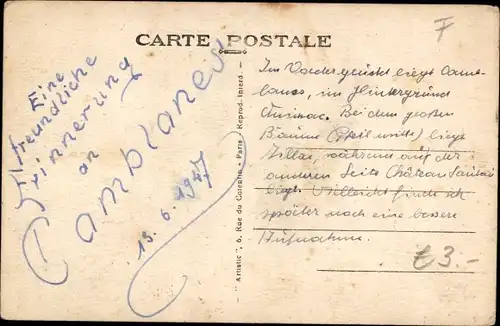 CARTE POSTALE
F
Eine
freundliche
Erinnerung
an
Camblanes
13. 6. 1947
"Artistic", 6, Rue du Corentin - Paris / Reprod. Interd.
Im Vordergrund liegt Camb-
lanes, im Hintergrund
Bei dem großen
Bäume (Pfeil) liegt
während auf der
anderen Seite Château
liegt. Vielleicht finde ich
später noch eine bessere
Aufnahme.
3.-